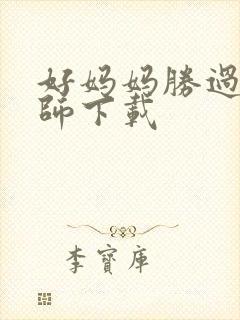 好妈妈勝過
師下載
李寶庫